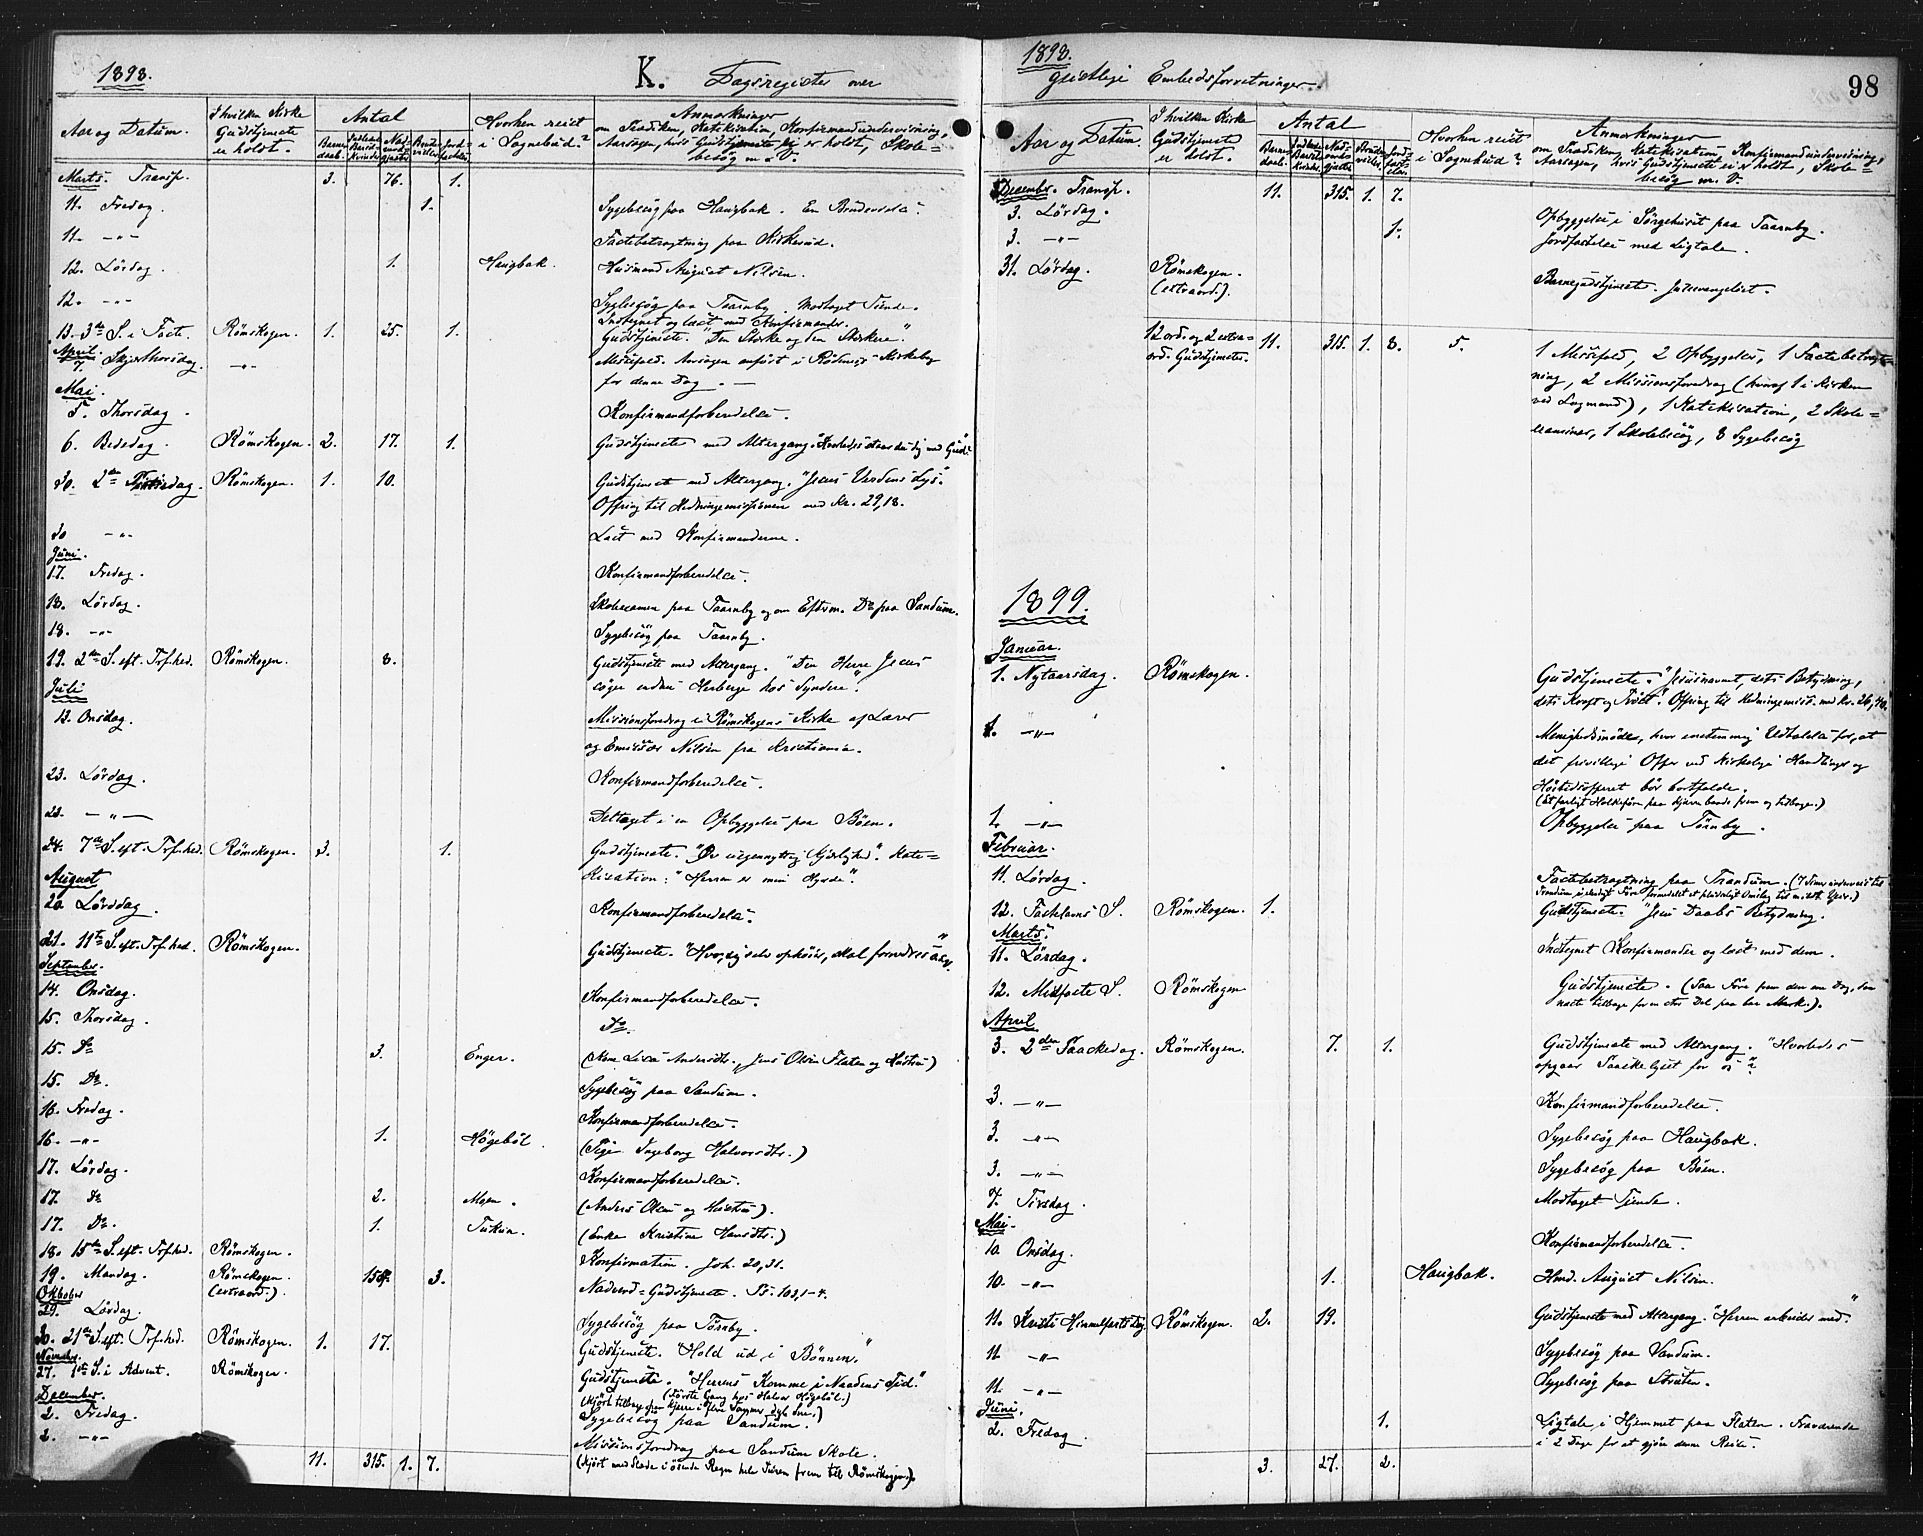 1898.
K. Dagsregister over
Aar og Datum.
I hvilken Kirke Gudstjeneste er holdt.
Antal
Barnedaab.
Nadverdgjæster
Hvorhen reist i Sognebud?
Anmærkninger
om Prædiken, Katekisation, Konfirmandundervisning,
Aarsagen, hvis Gudstjeneste ej er holdt, Skole=
besøg m. V.
Marts. Transp. 3. 76. 1.
11. Fredag. 1. Sygebesøg paa Haugbak. En Brudevielse.
11. -"- Fastebetragtning paa Kirkerud.
12. Lördag. 1. Haugbak. Husmand August Nilsen.
12. -"- Sygebesøg paa Taarnby. Modtaget Tiende.
Indtegnet og læst med Konfirmander.
13. 3de S. i Faste. Römskogen. 1. 25. 1. Gudstjeneste. "Den Stærke og den Stærkere."
April
7. Skjærthorsdag. -"- Messefald. Aarsagen anført i Rödenes Kirkebog
for denne Dag. -
Mai.
5. Thorsdag. Konfirmandforberedelse.
6. Bededag. Römskogen. 2. 17. 1. Gudstjeneste med Altergang. "Hvorledes staar du dig med Gud?"
30. 2den Pintsedag. Römskogen. 1. 10. Gudstjeneste med Altergang. "Jesus Verdens Lys."
Offring til Hedningemissionen med Kr. 29,18.
30 -"- Læst med Konfirmanderne.
Juni.
17. Fredag. Konfirmandforberedelse.
18. Lördag. Skoleexamen paa Taarnby og om Efterm. Do paa Sandum.
18. -"- Sygebesøg paa Taarnby.
19. 2den S. eft. Tref.hed. Römskogen. 8. Gudstjeneste med Altergang. "Den Herre Jesus
søger endnu Herberge hos Syndere."
Juli
13. Onsdag. Missionsforedrag i Römskogens Kirke af Lærer
og Emissær Nilsen fra Kristiania.
23. Lördag. Konfirmandforberedelse.
23. -"- Deltaget i en Opbyggelse paa Böen.
24. 7de S. eft. Tref.hed. Römskogen. 3. 1. Gudstjeneste. "Den uegennyttig Kjærlighed". Kate=
kisation: "Herren er min Hyrde".
August
20. Lörddag. Konfirmandforberedelse.
21. 11te S. eft. Tref.hed. Römskogen. Gudstjeneste. "Hver, sig selv ophöier, skal fornedres &c."
September.
14. Onsdag. Konfirmandforberedelse.
15. Thorsdag. Do
15. Do 3. Enger. (Kone Lisa Andersdtr., Jens Olsen Flaten og Hustru)
15. Do. Sygebesøg paa Sandum.
16. Fredag. Konfirmandforberedelse.
16. -"- 1. Högeböl. (Pige Ingeborg Halvorsdtr.)
17. Lördag. Konfirmandforberedelse.
17. Do 2. Moen. (Anders Olsen og Hustru).
17. Do. 1. Tukun. (Enke Kristine Hansdtr.)
18. 15de S. eft. Tref.hed. Römskogen. Konfirmation. Joh. 20,31.
19. Mandag. Römskogen. (extraord.). 155. 3. Nadverd=Gudstjeneste. Ps. 103,1-4.
Oktober
29. Lördag. Sygebesøg paa Törnby.
30. 21de S. eft. Tref.hed. Römskogen. 1. 17. Gudstjeneste. "Hold ud i Bönnen."
November
27. 1ste S. i Advent. Römskogen. Gudstjeneste. "Herrens Komme i Naadens Tid."
(Förste Gang hos Halvor Högeböl.)
December.
2. Fredag. Sygebesøg paa Sandum.
2. -"- Missionsforedrag paa Sandum Skole.
(Kjört med Slede i ösende Regn hele Turen frem til Römskogen.)
11. 315. 1. 7.
1898.
Geistlige Embedsforretninger.
98
Aar og Datum.
I hvilken Kirke Gudstjeneste er holdt.
Antal
Hvorhen reist i Sognebud?
Anmærkninger
om Prædiken, Katekisation, Konfirmandundervisning,
Aarsagen, hvis Gudstjeneste ei er holdt, Skole=
besøg m. V.
Decembr. Transp. 11. 315. 1. 7.
3. Lördag. Opbyggelse i Sörgehuset paa Taarnby.
3. -"- 1. Jordfæstelse med Ligtale.
31. Lördag. Römskogen. (extraord.). Barnegudstjeneste. Juleevangeliet.
12 ord. og 2 extra=
ord. Gudstjenester. 11. 315. 1. 8. 5. 1 Messefald, 2 Opbyggelse, 1 Fastebetragt=
ning, 2 Missionsforedrag (hvoraf 1 i Kirken
ved Lægmand), 1 Katekisation, 2 Skole=
examiner, 1 Skolebesøg, 8 Sygebesøg
1899.
Januar.
1. Nytaarsdag. Römskogen. Gudstjeneste. "Jesusnavnet, dets Betydning,
dets Kraft og Tröst." Offring til Hedningemiss. med Kr. 26,40.
1. -"- Menighedsmöde, hvor enstemmig Udtalelse for, at
det frivillige Offer ved Kirkelige Handlinger og
Höitidsofferet bör bortfalde.
1. -"- Opbyggelse paa Törnby.
Februar.
11. Lördag. Fastebetragtning paa Trandum.
12. Fastelavns S. Römskogen. 1. Gudstjeneste. "Jesu Daabs Betydning.
Marts.
11. Lördag. Indtegnet Konfirmander og læst med dem.
12. Midfaste S. Römskogen Gudstjeneste. (Saa Före frem den ene Dag, den
næste tilbage for en stor Del paa bar Mark.).
April
3. 2den Paaskedag. Römskogen. 7. 1. Gudstjeneste med Altergang. "Hvorledes
opgaar Paaskelyset for os"?
3. -"- Konfirmandforberedelse.
3. -"- Sygebesøg paa Haugbak.
3. -"- Sygebesøg paa Böen.
4. Tirsdag. Modtaget Tiende.
Mai.
10. Onsdag. Konfirmandforberedelse.
10. -"- 1. Haugbak. Hmd. August Nilsen.
11. Kristi Himmelfartsdag Römskogen. 2. 19. Gudstjeneste med Altergang. "Herren arbeider med."
11 -"- Sygebesøg paa Sandum.
11. -"- Sygebesøg paa Stræten.
Juni.
2. Fredag. 1. Ligtale i Hjemmet paa Flaten. Fraværende
i 2 Dage for at gjöre denne Reise.
3. 27. 2.